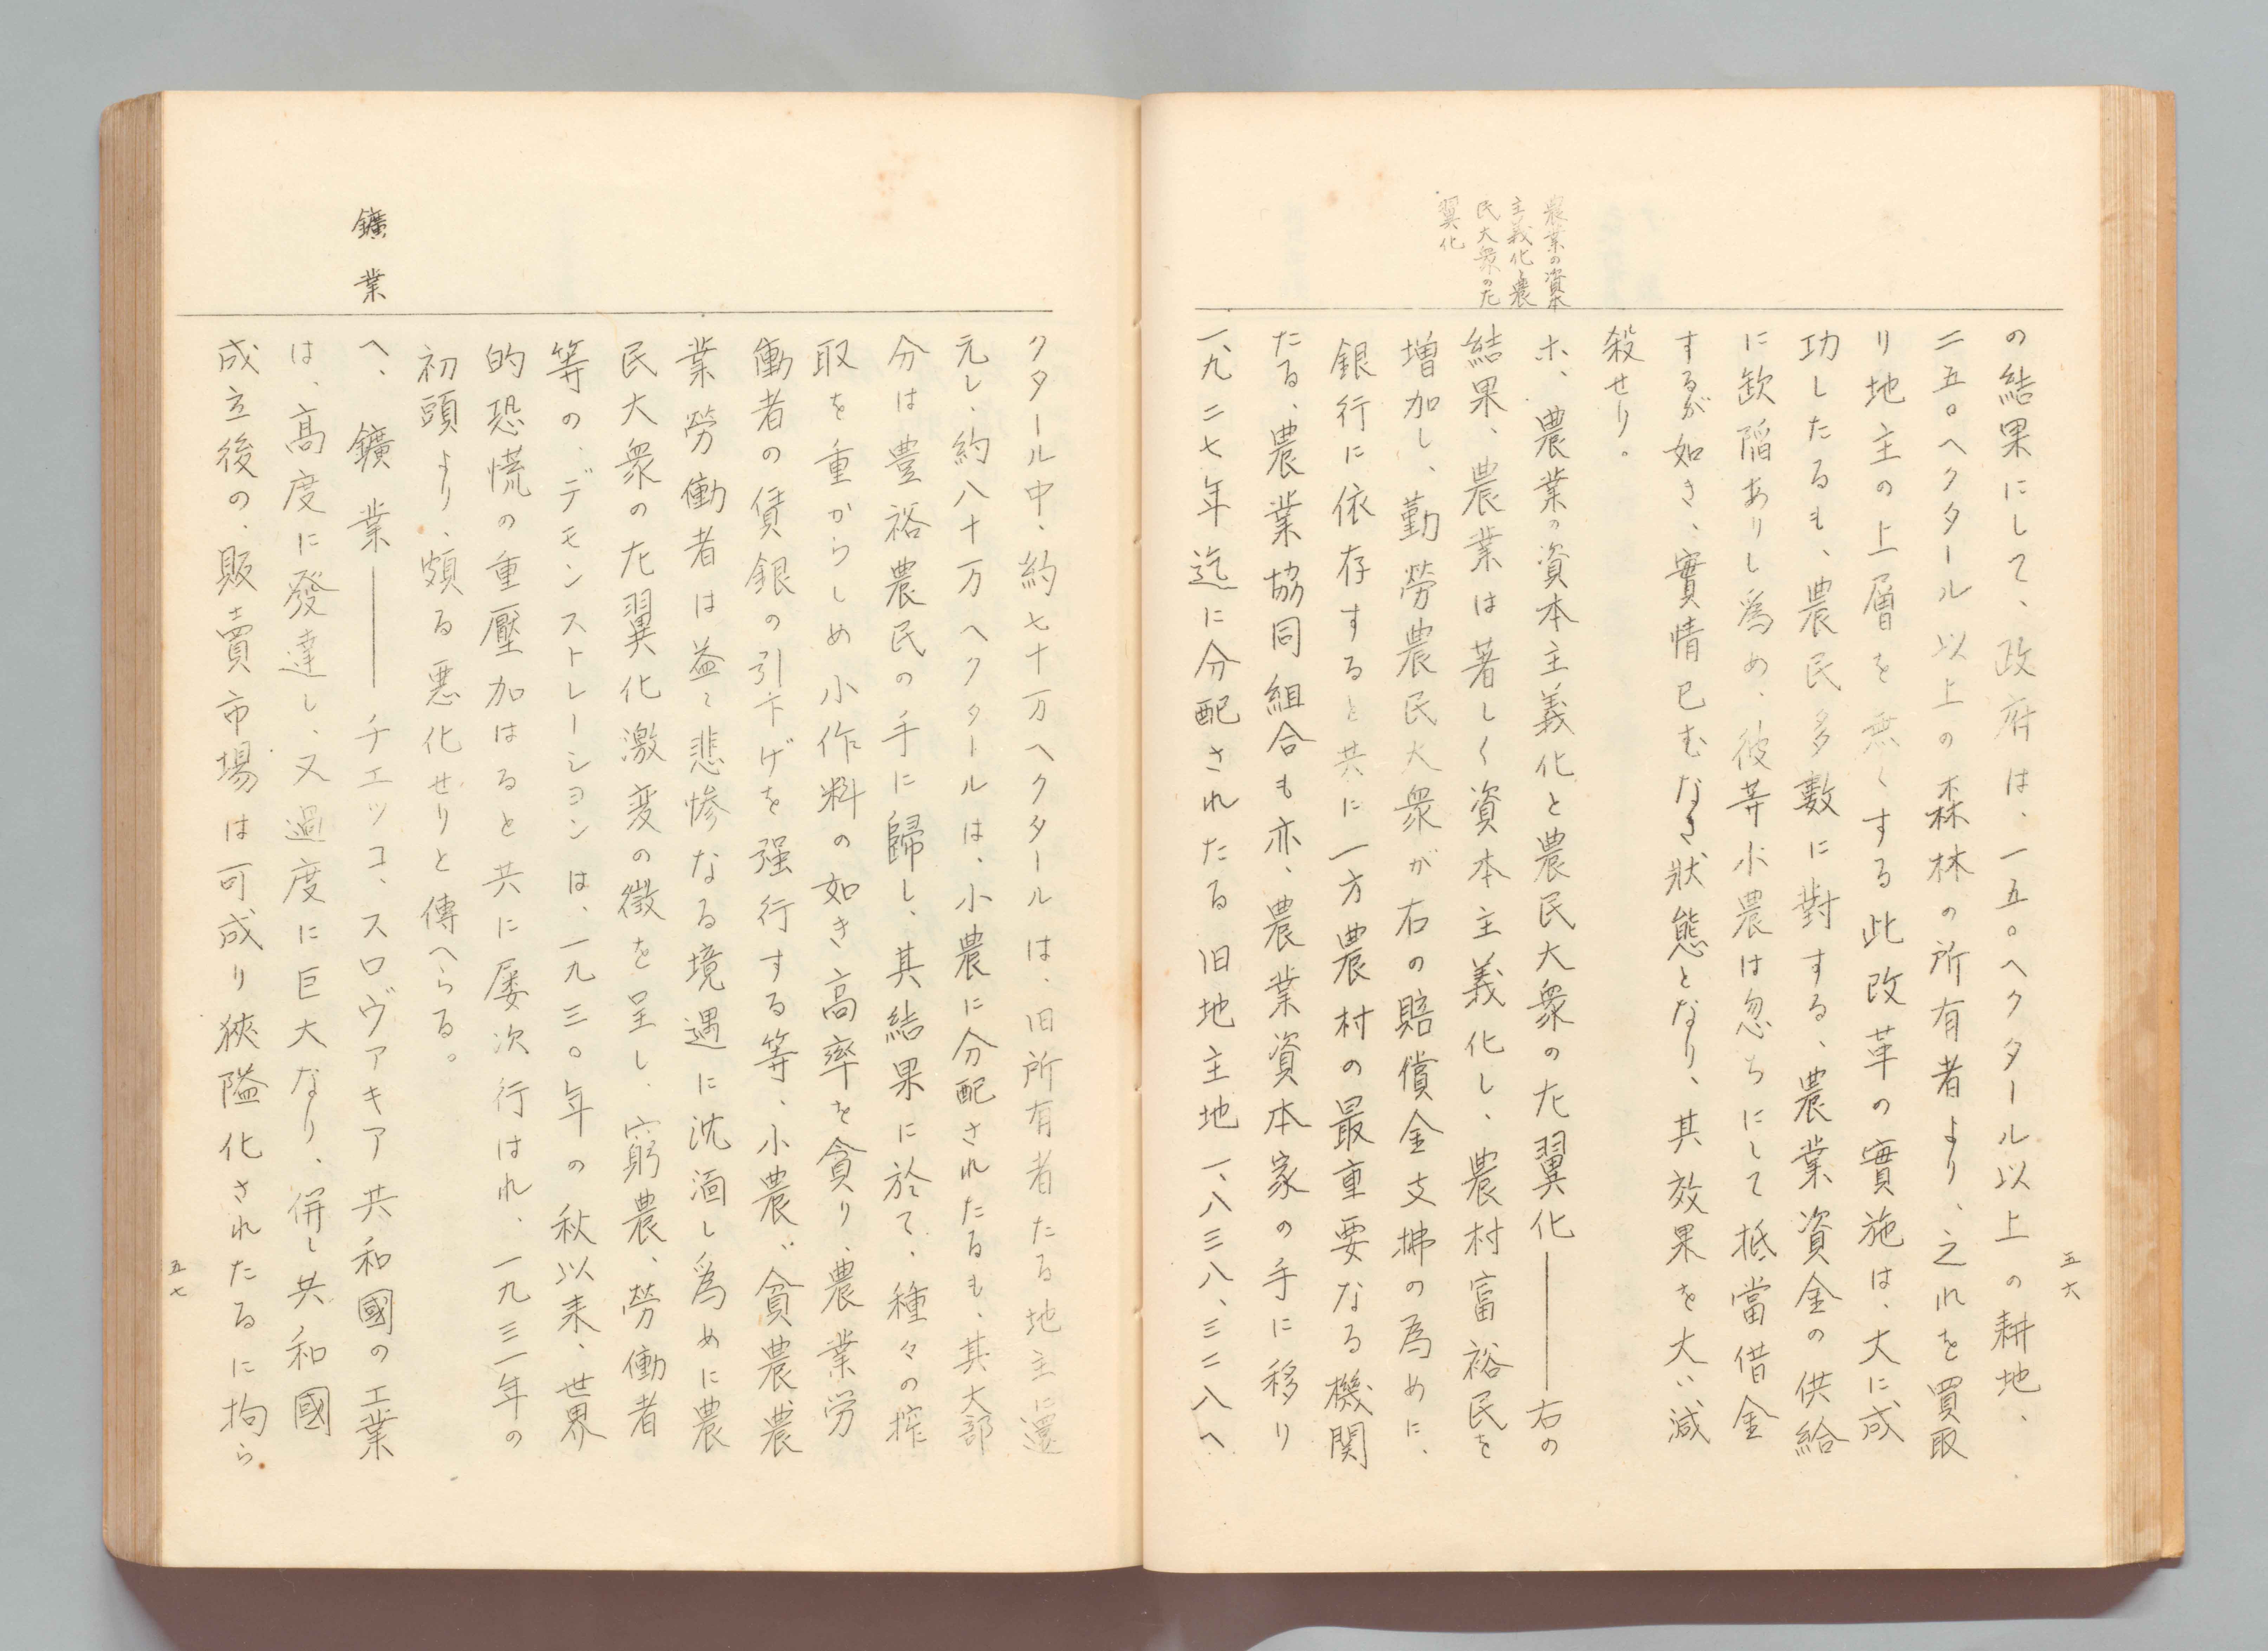 五六
農業の資本
主義化と農
民大衆の左
翼化
の結果にして、政府は、一五〇ヘクタール以上の耕地、
二五〇ヘクタール以上の森林の所有者より、之れを買取
り地主の上層を無くする此改革の實施は、大に成
功したるも、農民多數に對する、農業資金の供給
に欽陥ありし為め、彼等小農は忽ちにして抵當借金
するが如き、實情已むなき狀態となり、其效果を大い減
殺せり。
ホ、農業の資本主義化と農民大衆の左翼化――右の
結果、農業は著しく資本主義化し、農村富裕民を
増加し、勤勞農民大衆が右の賠償金支拂の為めに、
銀行に依存すると共に一方農村の最重要なる機関
たる、農業協同組合も亦、農業資本家の手に移り
一九二七年迄に分配されたる旧地主地一、八三八、三二八ヘ
クタール中、約七十万ヘクタールは、旧所有者たる地主に還
元し、約八十万ヘクタールは、小農に分配されたるも、其大部
分は豊裕農民の手に歸し、其結果に於て、種々の搾
取を重からしめ小作料の如き高率を貪り、農業労
働者の賃銀の引下げを强行する等、小農、貧農、農
業勞働者は益々悲惨なる境遇に沈湎し為めに農
民大衆の左翼化激変の徴を呈し、窮農、勞働者
等の、デモンストレーションは、一九三〇年の秋以来、世界
的恐慌の重壓加はると共に屡次行はれ、一九三一年の
初頭より、頗る悪化せりと傳へらる。
鑛業
ヘ、鑛業――チエッコ、スロヴァキア共和國の工業
は、高度に發達し、又過度に巨大なり、併し共和國
成立後の、販賣市場は可成り狹隘化されたるに拘ら
五七